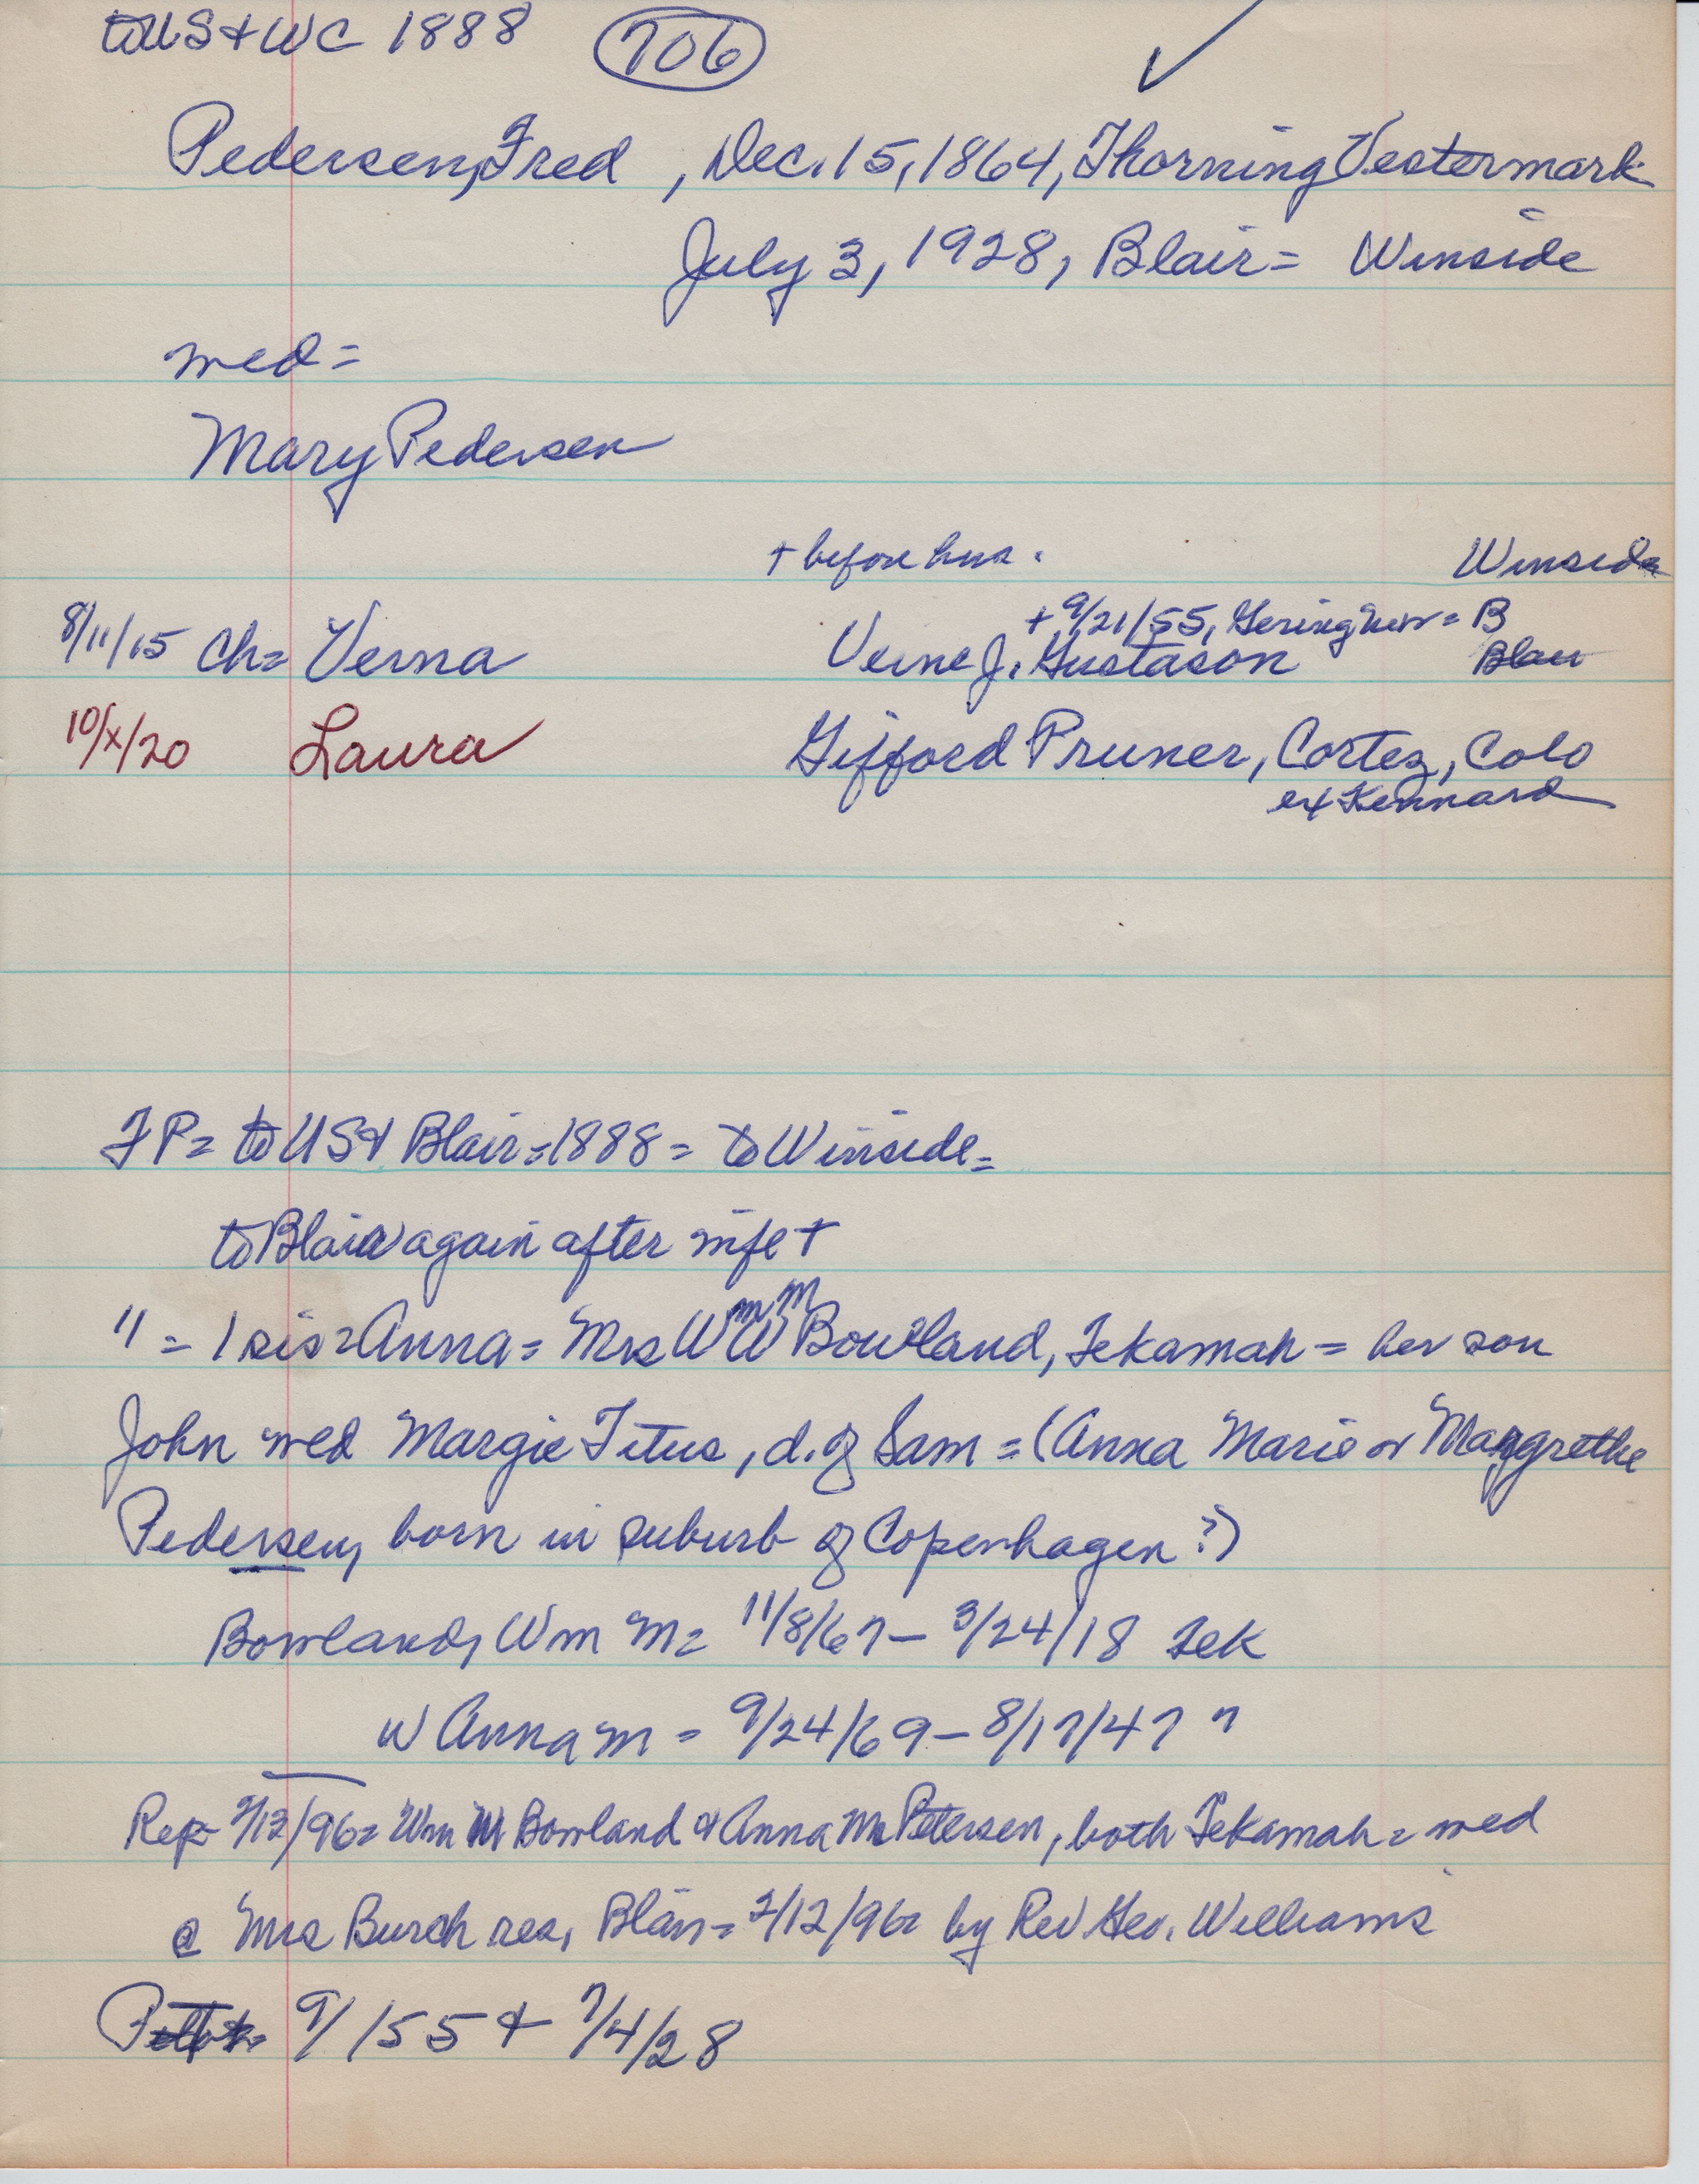 to US & WC 1888 706 ✓
Pedersen, Fred , Dec. 15, 1864, Thorning Vestermark
July 3, 1928, Blair = Winside
med =
Mary Pedersen
+ before hus. Winside
+ 9/21/55, Gering = B
8/11/15 Ch= Verna Verne J. Gustason Blair
10/x/20 Laura Gifford Pruner, Cortez, Colo
ex Kennard
FP= to US & Blair = 1888 = to Winside =
to Blair again after wife +
" = 1 sis = Anna = Mrs Wm M Bowland, Tekamah = her son
John med Margie Titus, d. of Sam = (Anna Marie or Margrethe
Pedersen, born in suburb of Copenhagen?)
Bowland, Wm M= 11/8/67 – 3/24/18 Tek
w Anna M = 9/24/69 – 8/17/47 "
Rep 2/13/96= Wm M Bowland & Anna M Petersen, both Tekamah = med
@ Mrs Burch res, Blair = 2/12/96 by Rev Geo. Williams
9/ 155 & 7/4/28